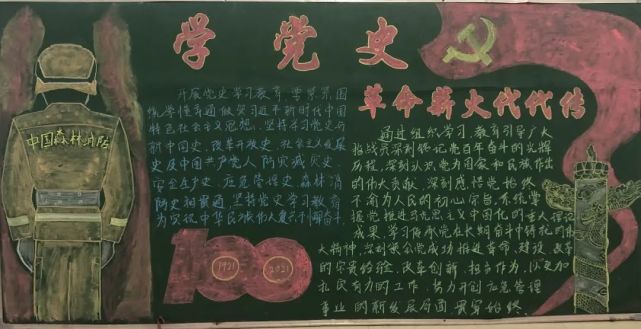 学党史
革命薪火代代传
中国森林消防
开展党史学习教育,要紧紧围
学懂弄通做实习近平新时代中国
特色社会主义思想,坚持学习党史与
新中国史、改革开放史、社会主义发展
史及中国共产党人防灾减灾史、
安全生产史、应急管理史、森林消
防史相贯通,坚持党史学习教育
为实现中华民族伟大复兴不懈奋斗。
1921
2021
通过组织学习,教育引导广大
指战员深刻铭记党百年奋斗的光辉
历程,深刻认识党为国家和民族作出
的伟大贡献,深刻感悟党始终
不渝为人民的初心宗旨,系统掌
握党推进马克思主义中国化的重大理论
成果,学习传承党在长期奋斗中铸就的伟
大精神,深刻领会党成功推进革命、建设、改革
的宝贵经验,改革创新、担当作为,以更加
扎实有力的工作,努力开创应急管理
事业的新发展局面,贯穿始终。